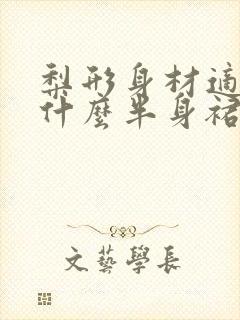 梨形身材適
什麼半身裙
文藝學長